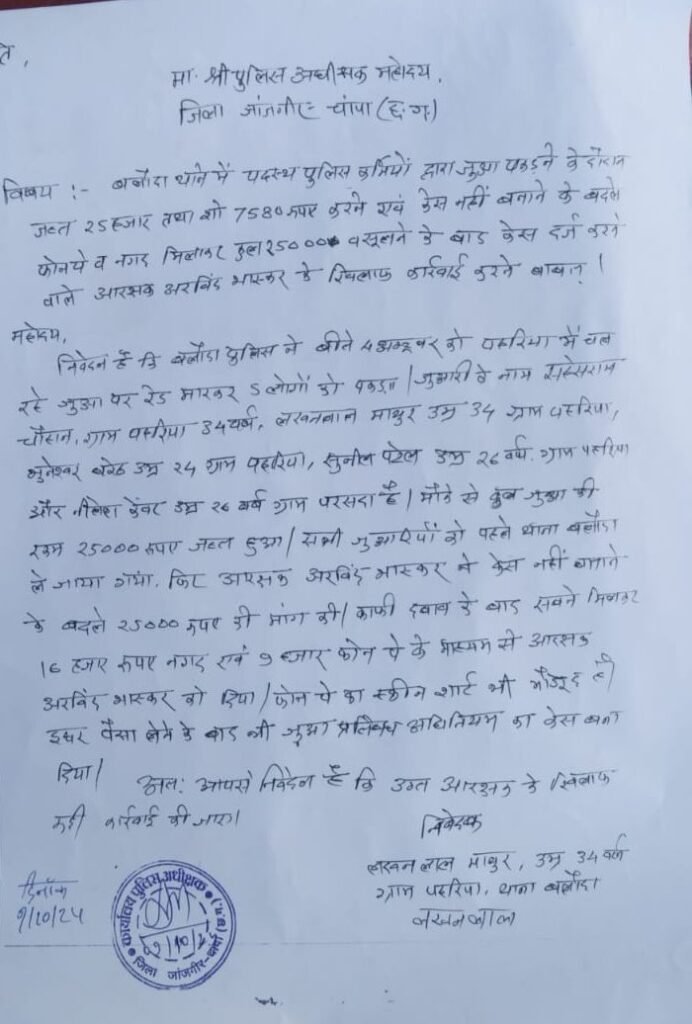 ति,
मा. श्री पुलिस अधीक्षक महोदय,
जिला जांजगीर- चांपा (छ.ग.)
विषय :- बलौदा थाने में पदस्थ पुलिस कर्मियों द्वारा जुआ पकड़ने के दौरान
जब्त 25 हजार तथा शो 7580 रुपए करने एवं केस नहीं बनाने के बदले
फोनपे व नगद मिलाकर कुल 25000 वसूलने के बाद केस दर्ज करने
वाले आरक्षक अरविंद भास्कर के खिलाफ कार्रवाई करने बाबत् ।
महोदय,
निवेदन है कि बलौदा पुलिस ने बीते 4 अक्टूबर को पहरिया में चल
रहे जुआ पर रेड मारकर 5 लोगों को पकड़ा । जुआरी के नाम
चौहान, ग्राम पहरिया 34 वर्ष, लखनलाल माथुर उम्र 34 ग्राम पहरिया,
भुनेश्वर बरेठ उम्र 24 ग्राम पहरिया, सुनील पटेल उम्र 26 वर्ष. ग्राम पहरिया
और नीलेश केंवट उम्र 26 वर्ष ग्राम परसदा है । मौके से कुल जुआ की
रकम 25000 रुपए जब्त हुआ । सभी जुआरियों को पहले थाना बलौदा
ले जाया गया. फिर आरक्षक अरविंद भास्कर ने केस नहीं बनाने
के बदले 25000 रुपए की मांग की । काफी दबाव के बाद सबने मिलकर
16 हजार रुपए नगद एवं 9 हजार फोन पे के माध्यम से आरक्षक
अरविंद भास्कर को दिया । फोन पे का स्क्रीन शार्ट भी मौजूद है।
इधर पैसा लेने के बाद भी जुआ प्रतिबंध अधिनियम का केस बना
दिया ।
अत: आपसे निवेदन है कि उक्त आरक्षक के खिलाफ
कड़ी कार्रवाई की जाए।
निवेदक
लखन लाल माथुर, उम्र 34 वर्ष
ग्राम पहरिया, थाना बलौदा
लखनलाल
दिनांक
9/10/24
कार्यालय पुलिस अधीक्षक
जिला जांजगीर-चांपा (छ.ग.)